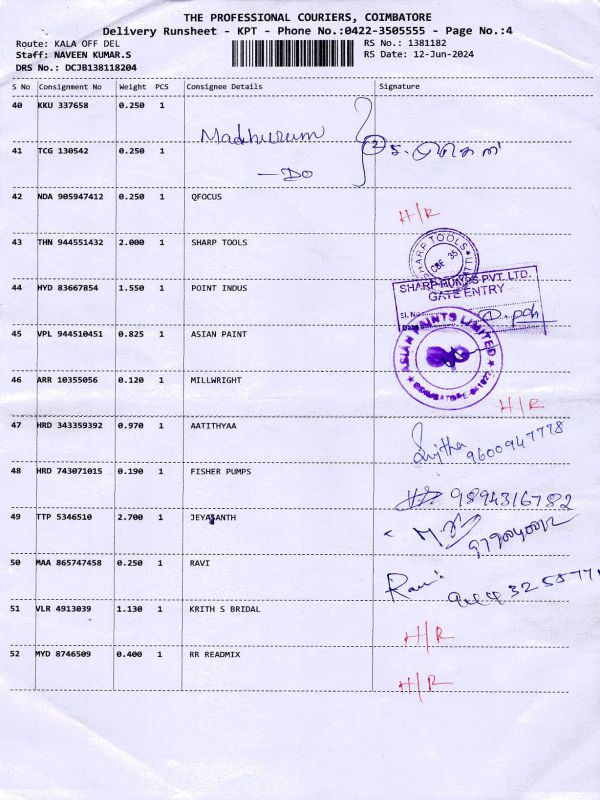 THE PROFESSIONAL COURIERS, COIMBATORE
Delivery Runsheet - KPT - Phone No.:0422-3505555 - Page No.:4
Route: KALA OFF DEL RS No.: 1381182
Staff: NAVEEN KUMAR.S RS Date: 12-Jun-2024
DRS No.: DCJB138118204
S No Consignment No Weight PCS Consignee Details Signature
40 KKU 337658 0.250 1
Madhuram
41 TCG 130542 0.250 1
— Do 2
42 NDA 905947412 0.250 1 QFOCUS
H/R
43 THN 944551432 2.000 1 SHARP TOOLS
SHARP TOOLS
CBE 35
44 HYD 83667854 1.550 1 POINT INDUS
SHARP PUMPS PVT. LTD.
GATE ENTRY
Sl. No.
Date
45 VPL 944510451 0.825 1 ASIAN PAINT
ASIAN PAINTS LIMITED
46 ARR 10355056 0.120 1 MILLWRIGHT
H/R
47 HRD 343359392 0.970 1 AATITHYAA
Sujitha 9600947778
48 HRD 743071015 0.190 1 FISHER PUMPS
9894316782
49 TTP 5346510 2.700 1
50 MAA 865747458 0.250 1 RAVI
Ravi
51 VLR 4913039 1.130 1 KRITH S BRIDAL
H/R
52 MYD 8746509 0.400 1 RR READMIX
H/R